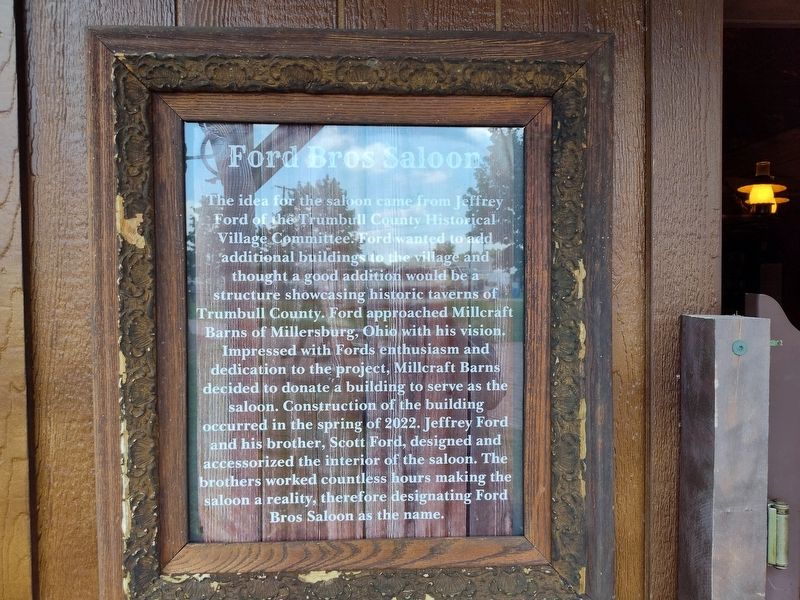 Ford Bros Saloon
The idea for the saloon came from Jeffrey
Ford of the Trumbull County Historical
Village Committee. Ford wanted to add
additional buildings to the village and
thought a good addition would be a
structure showcasing historic taverns of
Trumbull County. Ford approached Millcraft
Barns of Millersburg, Ohio with his vision.
Impressed with Fords enthusiasm and
dedication to the project, Millcraft Barns
decided to donate a building to serve as the
saloon. Construction of the building
occurred in the spring of 2022. Jeffrey Ford
and his brother, Scott Ford, designed and
accessorized the interior of the saloon. The
brothers worked countless hours making the
saloon a reality, therefore designating Ford
Bros Saloon as the name.